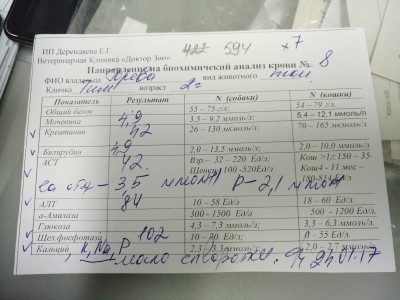 ИП Дерендяева Е.Г.
Ветеринарная Клиника «Доктор Зоо»
422 594 х7
Направление на биохимический анализ крови № 8
ФИО владельца вид животного
Кличка возраст 2г
Показатель Результат N (собаки) N (кошки)
Общий белок 55 – 75 г/л. 54 – 79 г/л.
Мочевина 4,9 3,5 – 9,2 ммоль/л 5,4 – 12,1 ммоль/л
Креатинин 42 26 – 130 мкмоль/л 70 – 165 мкмоль/л
Билирубин 4,9 2,0 – 13,5 ммоль/л 2,0 – 10,0 ммоль/л
АСТ 42. Взр.- 32 – 220 Ед/л; Кош >1г:150 – 35-
Щенки: 100 -520Ед/л Кош4 - 11 мес –
180-81
Са общ – 3,5 ммол Р – 2,1 ммол
АЛТ 84 10 – 58 Ед/л 18 – 60 Ед/л.
α-Амилаза 300 - 1500 Ед/л 500 - 1200 Ед/л.
Глюкоза 4,3 – 7,3 ммоль/л; 3,3 – 6,3 ммоль/л.
Щел.фосфотаза 102 10 – 70 Ед/л; 0 – 55 Ед/л.
Кальций , K, Na, P 2,3 – 3,3 ммоль/л 2,0 – 2,7 ммоль/л
мало сыворотки. 24.01.17